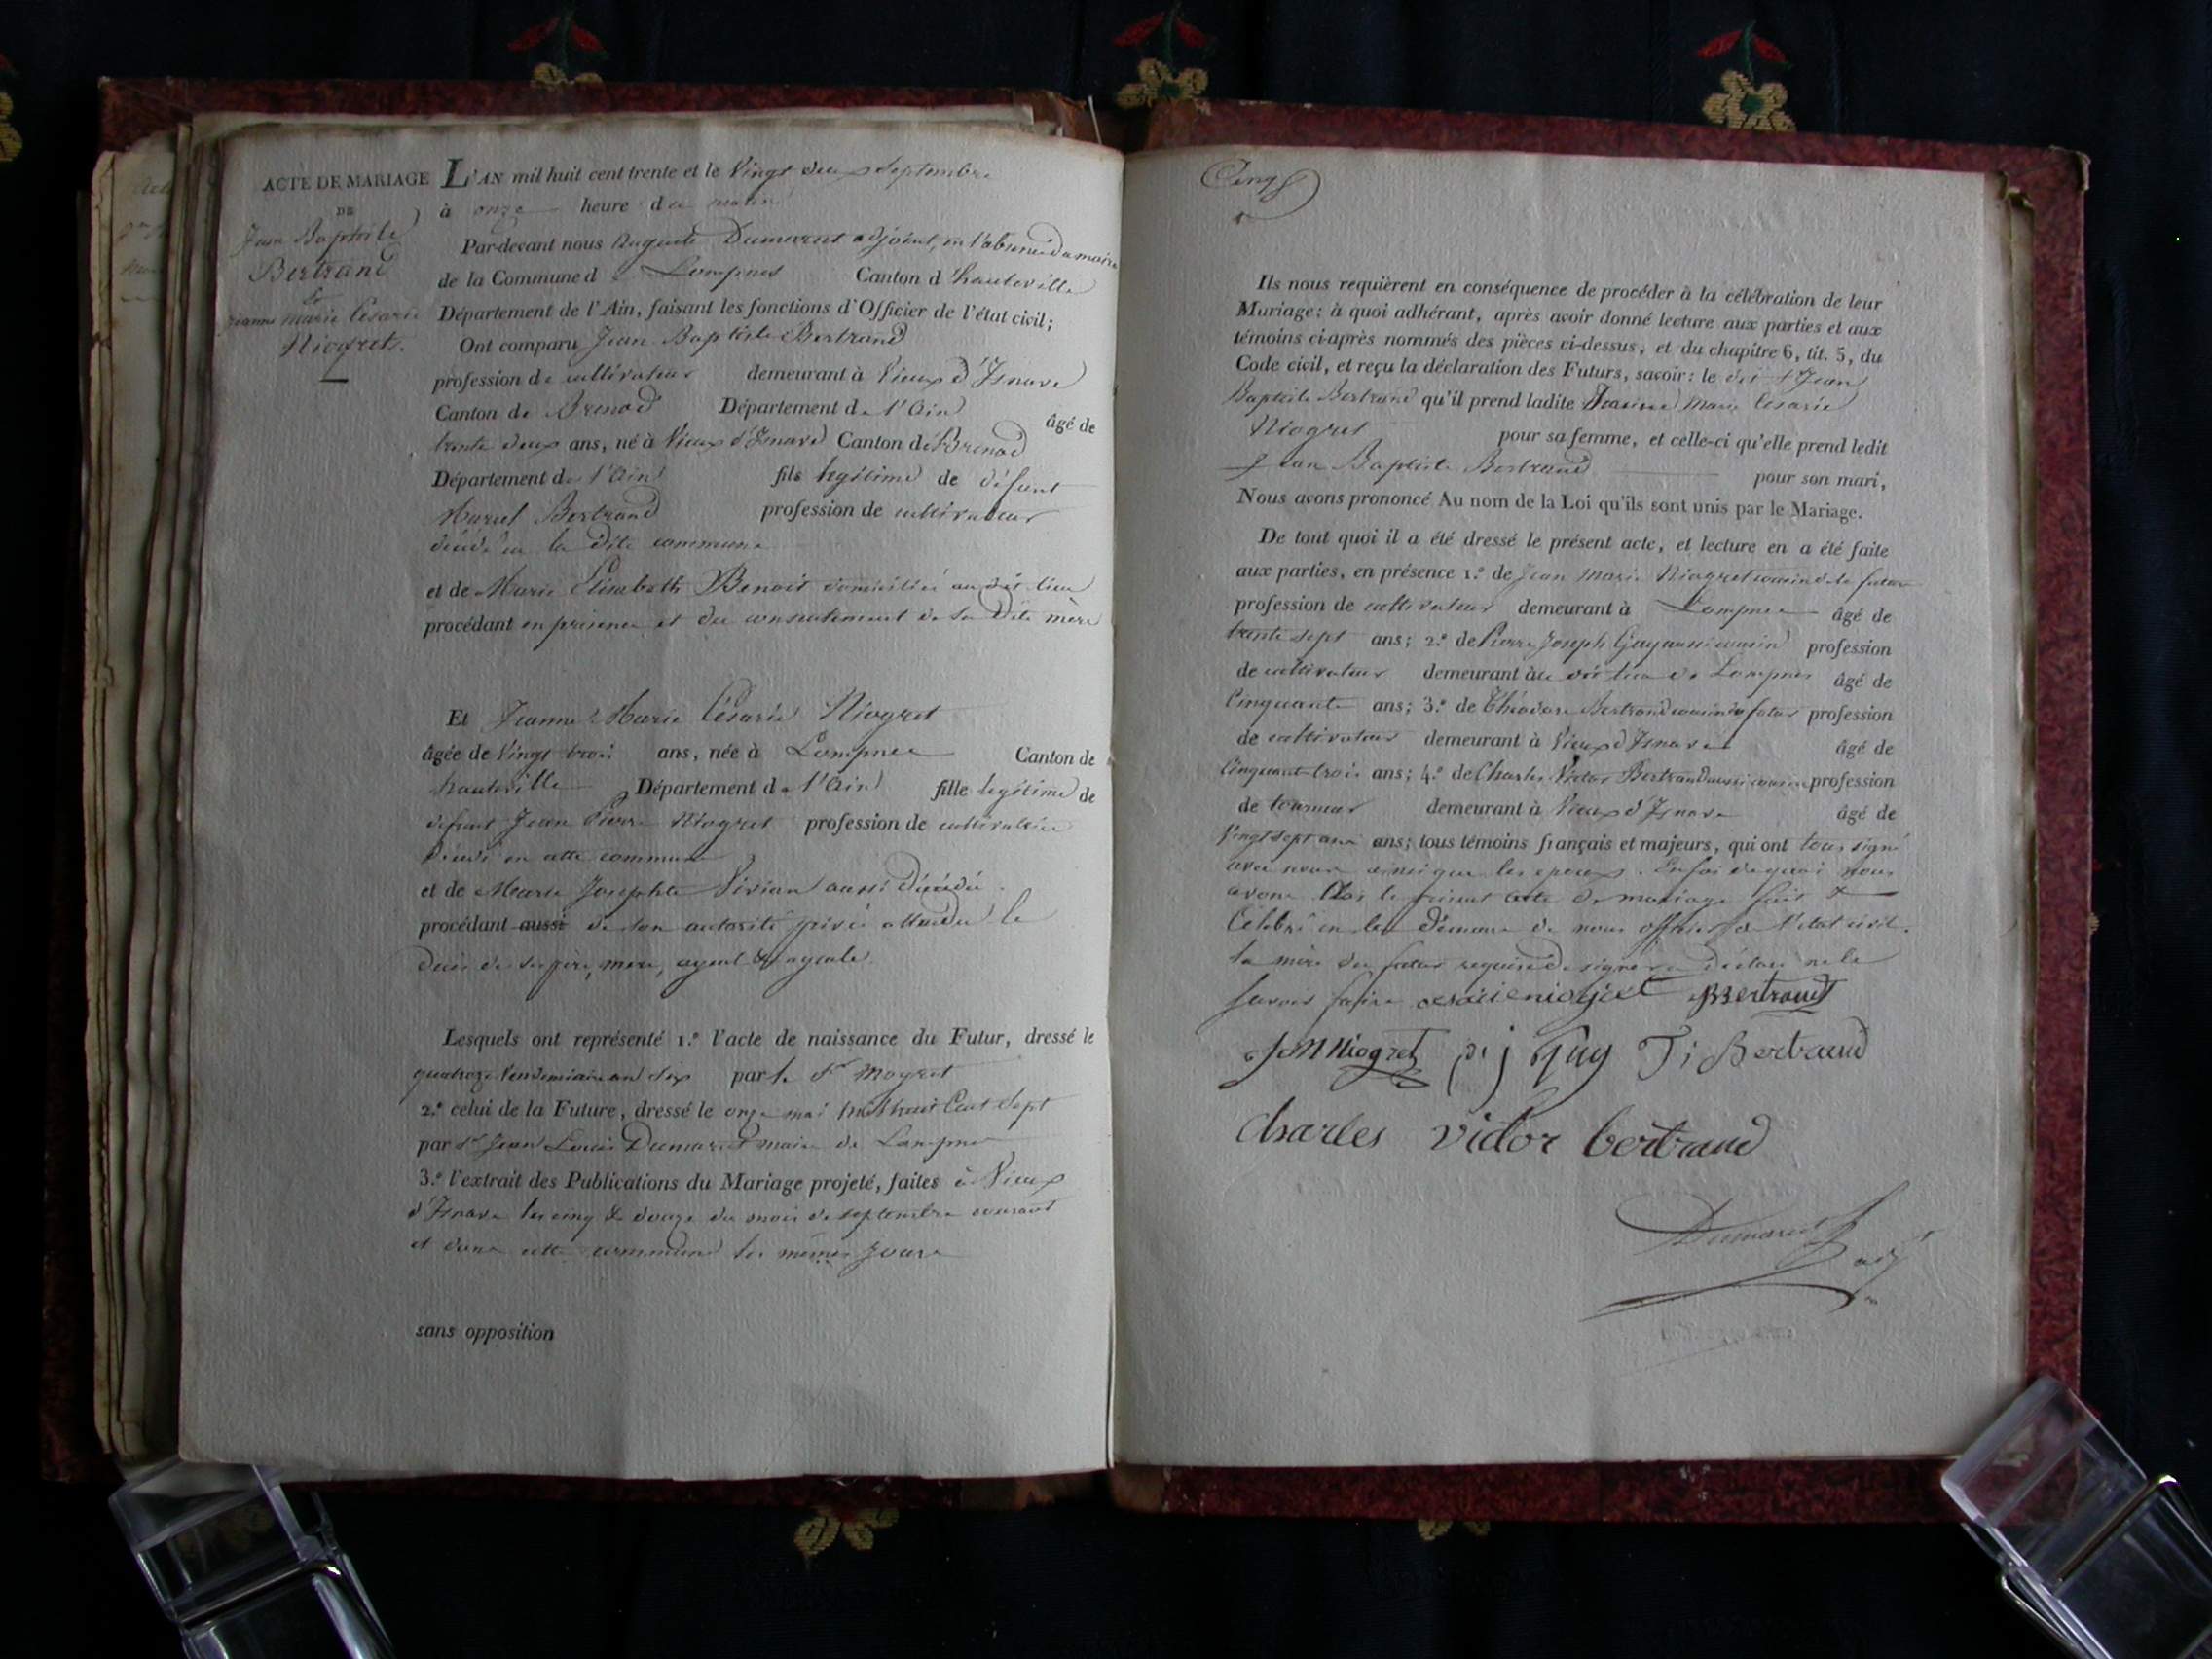 ACTE DE MARIAGE
DE
Jean Baptiste
Bertrand
&
jeanne marie Césarie
Niogret.
L'AN mil huit cent trente et le Vingt deux Septembre
à onze heure du matin
Par-devant nous Auguste Dumarest adjoint, en l'absence du maire
de la Commune d Lompnes Canton d'hauteville
Département de l'Ain, faisant les fonctions d'Officier de l'état civil;
Ont comparu Jean Baptiste Bertrand
profession de cultivateur demeurant à Vieux d'Isnave
Canton de Brenod Département de l'Ain âgé de
trente deux ans, né à Vieux d'Isnave Canton de Brenod
Département de l'Ain fils legitime de défunt
Bertrand profession de cultivateur
décédé en la dite commune
et de Marie Elisabeth Benoit domiciliée au dit lieu
procédant en présence et du consentement de sa dite mère
Et Jeanne Marie Césarie Niogret
âgée de Vingt trois ans, née à Lompnes Canton de
hauteville Département de l'Ain fille legitime de
defunt Jean Pierre Niogret profession de cultivateur
décédé en cette commune
et de Marie Josephte Vivian aussi décédée
procédant aussi de son autorité privée attendu le
décès de ses père, mère, ayeul & ayeule
Lesquels ont représenté 1.º l'acte de naissance du Futur, dressé le
quatorze Vendemiaire an Six par le Sr Moyret
2.º celui de la Future, dressé le onze mai mil huit Cent Sept
par Sr Jean Louis Dumarest maire de Lompnes
3.º l'extrait des Publications du Mariage projeté, faites à Vieux
d'Isnave les cinq & douze du mois de septembre courant
et dans cette commune les mêmes jours
sans opposition
Cinq
Ils nous requièrent en conséquence de procéder à la célébration de leur
Mariage: à quoi adhérant, après avoir donné lecture aux parties et aux
témoins ci-après nommés des pièces ci-dessus, et du chapitre 6, tit. 5, du
Code civil, et reçu la déclaration des Futurs, savoir: le dit Jean
Baptiste Bertrand qu'il prend ladite Jeanne Marie Césarie
Niogret pour sa femme, et celle-ci qu'elle prend ledit
Jean Baptiste Bertrand pour son mari,
Nous avons prononcé Au nom de la Loi qu'ils sont unis par le Mariage.
De tout quoi il a été dressé le présent acte, et lecture en a été faite
aux parties, en présence 1.º de Jean Marie Niogret cousin de la future
profession de cultivateur demeurant à Lompnes âgé de
trente sept ans; 2.º de Pierre Joseph Guy aussi cousin profession
de cultivateur demeurant au dit lieu de Lompnes âgé de
Cinquante ans; 3.º de Théodore Bertrand cousin du futur profession
de cultivateur demeurant à Vieux d'Isnave âgé de
Cinquante trois ans; 4.º de Charles Victor Bertrand aussi cousin profession
de tourneur demeurant à Vieux d'Isnave âgé de
Vingt sept ans ans; tous témoins français et majeurs, qui ont tous signé
avec nous ainsi que les epoux. En foi de quoi nous
avons Clos le présent acte de mariage fait &
Célébré en la demeure de nous officier de l'etat civil.
la mère du futur requise de signer a déclaré ne le
savoir faire Césarie niogret Bertrand
J M Niogret p j Guy T i Bertrand
Charles victor bertrand
Dumarest
adj